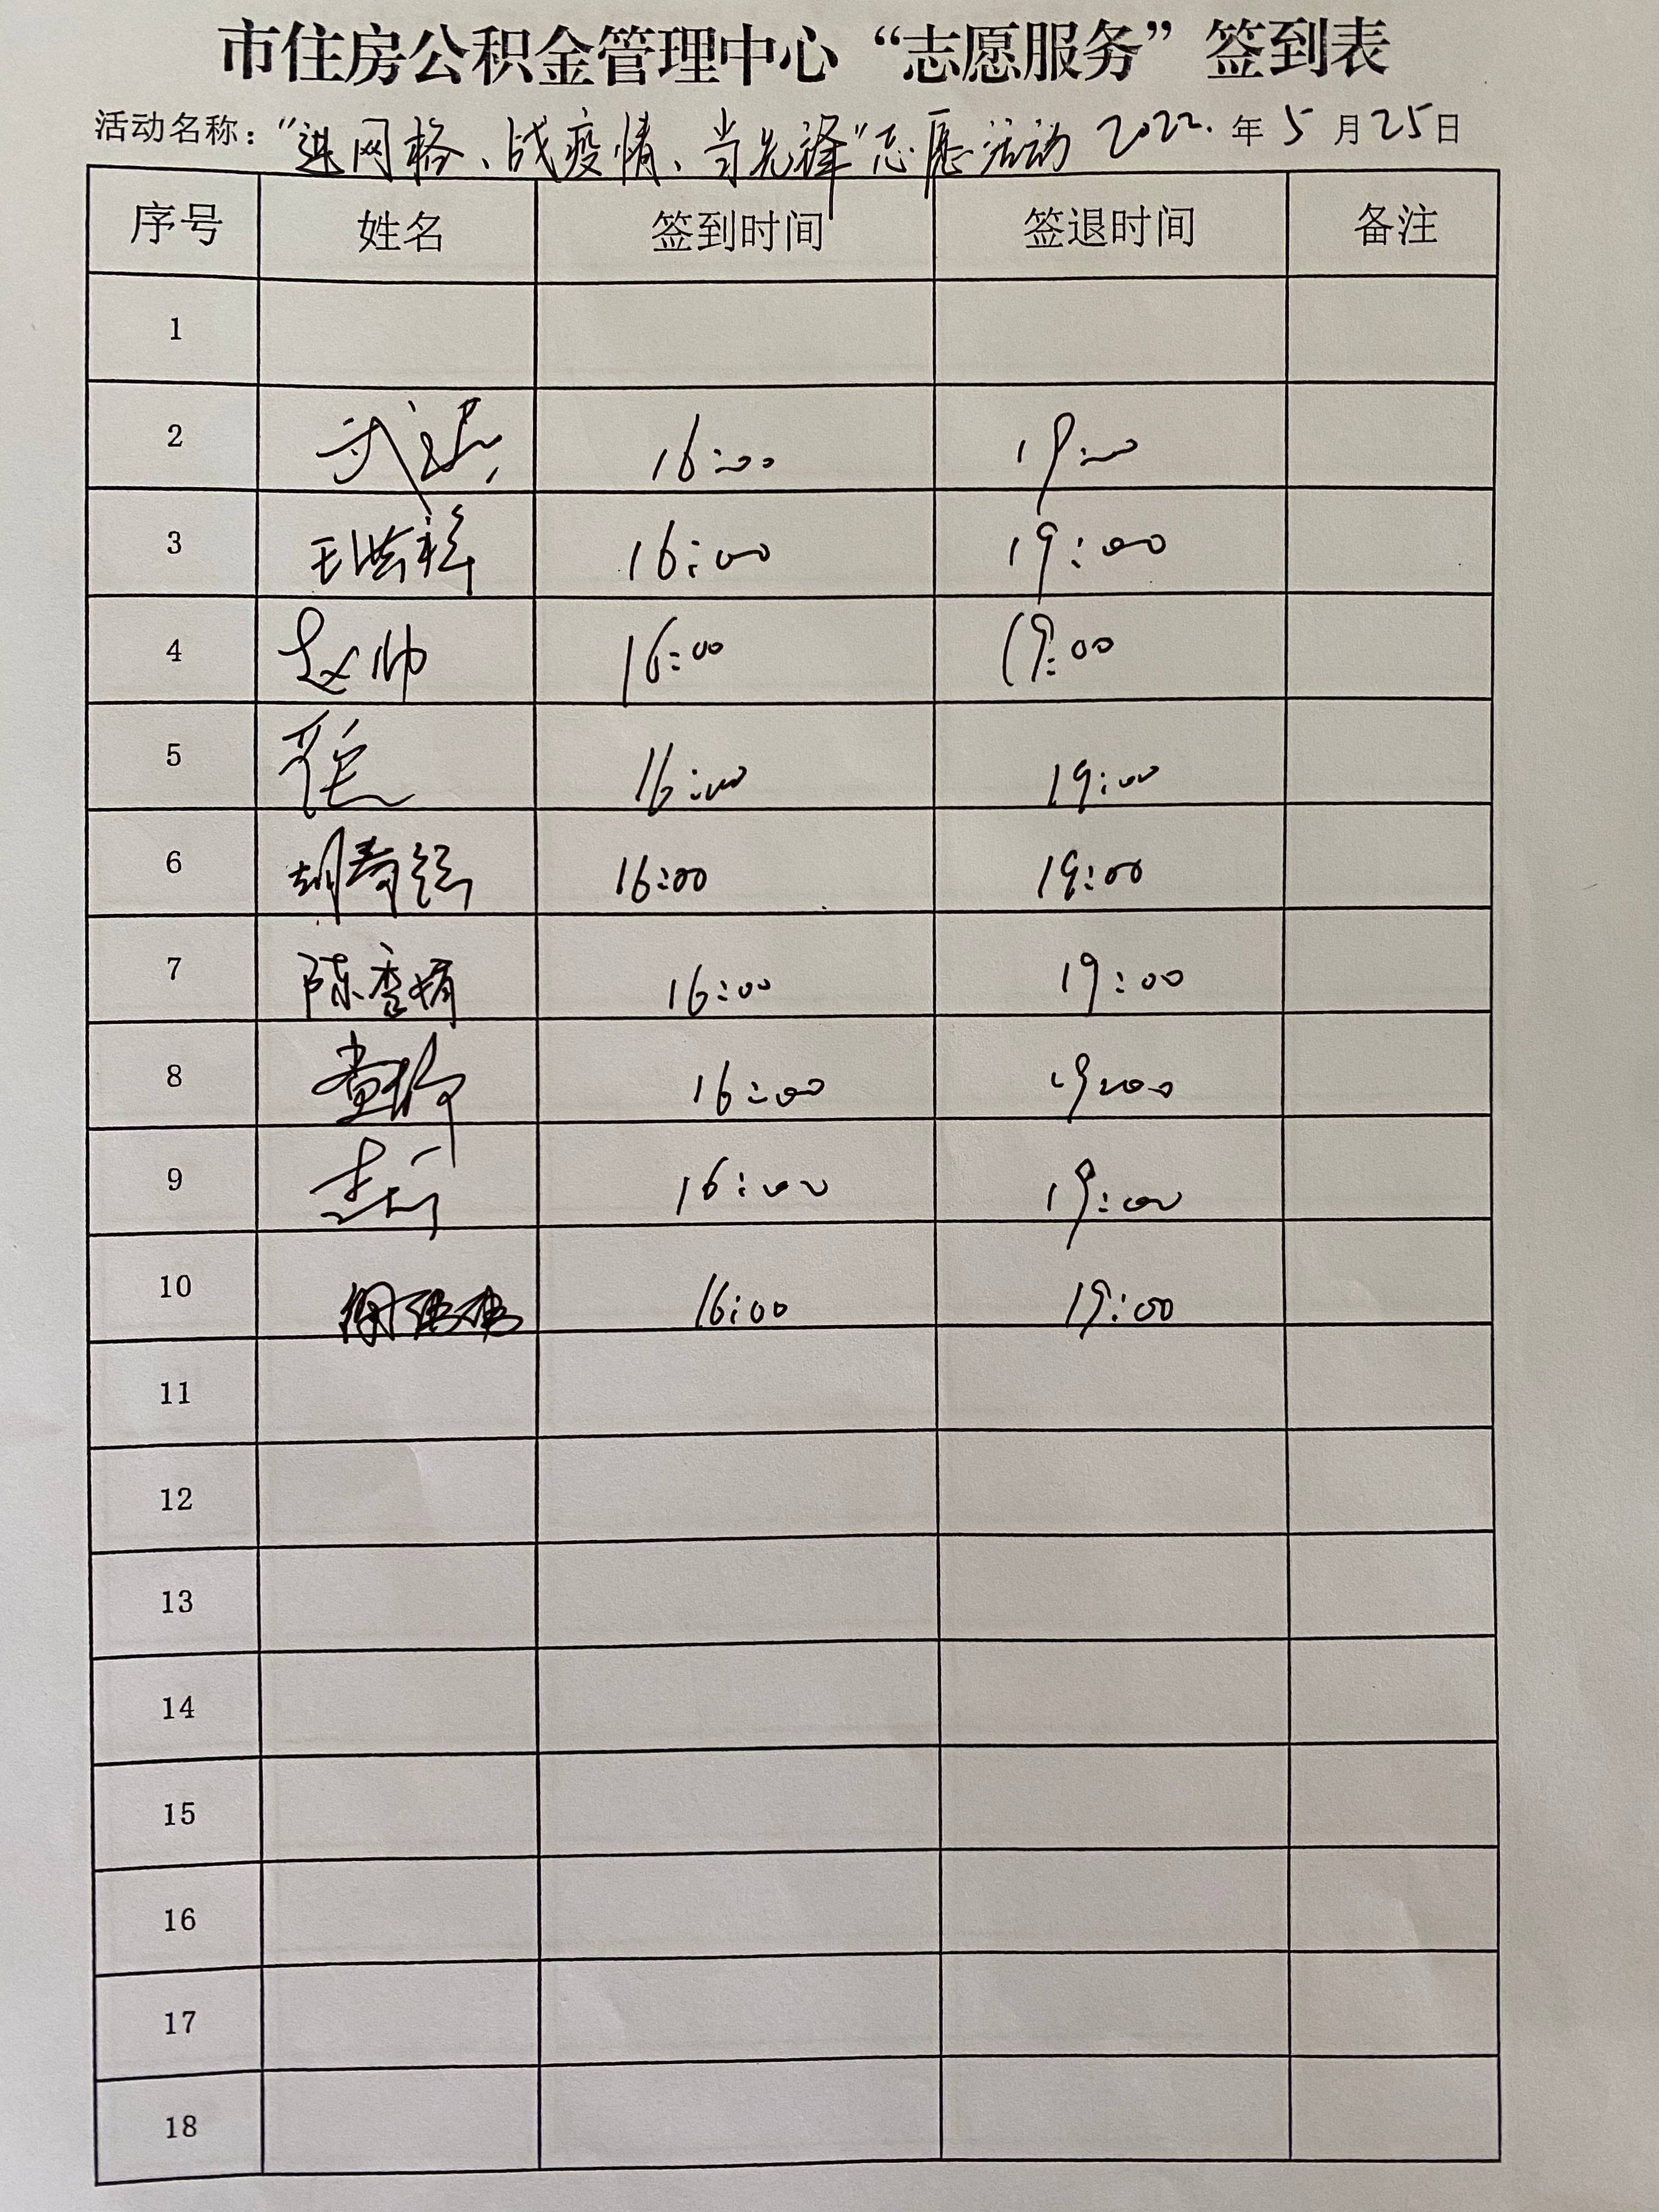 市住房公积金管理中心“志愿服务”签到表
活动名称：“进网格、战疫情、当先锋”志愿活动 2022. 年 5 月 25 日
序号 姓名 签到时间 签退时间 备注
1
2 16:00 19:00
3 16:00 19:00
4 赵帅 16:00 19:00
5 16:00 19:00
6 16:00 19:00
7 陈季娟 16:00 19:00
8 16:00 19:00
9 16:00 19:00
10 16:00 19:00
11
12
13
14
15
16
17
18